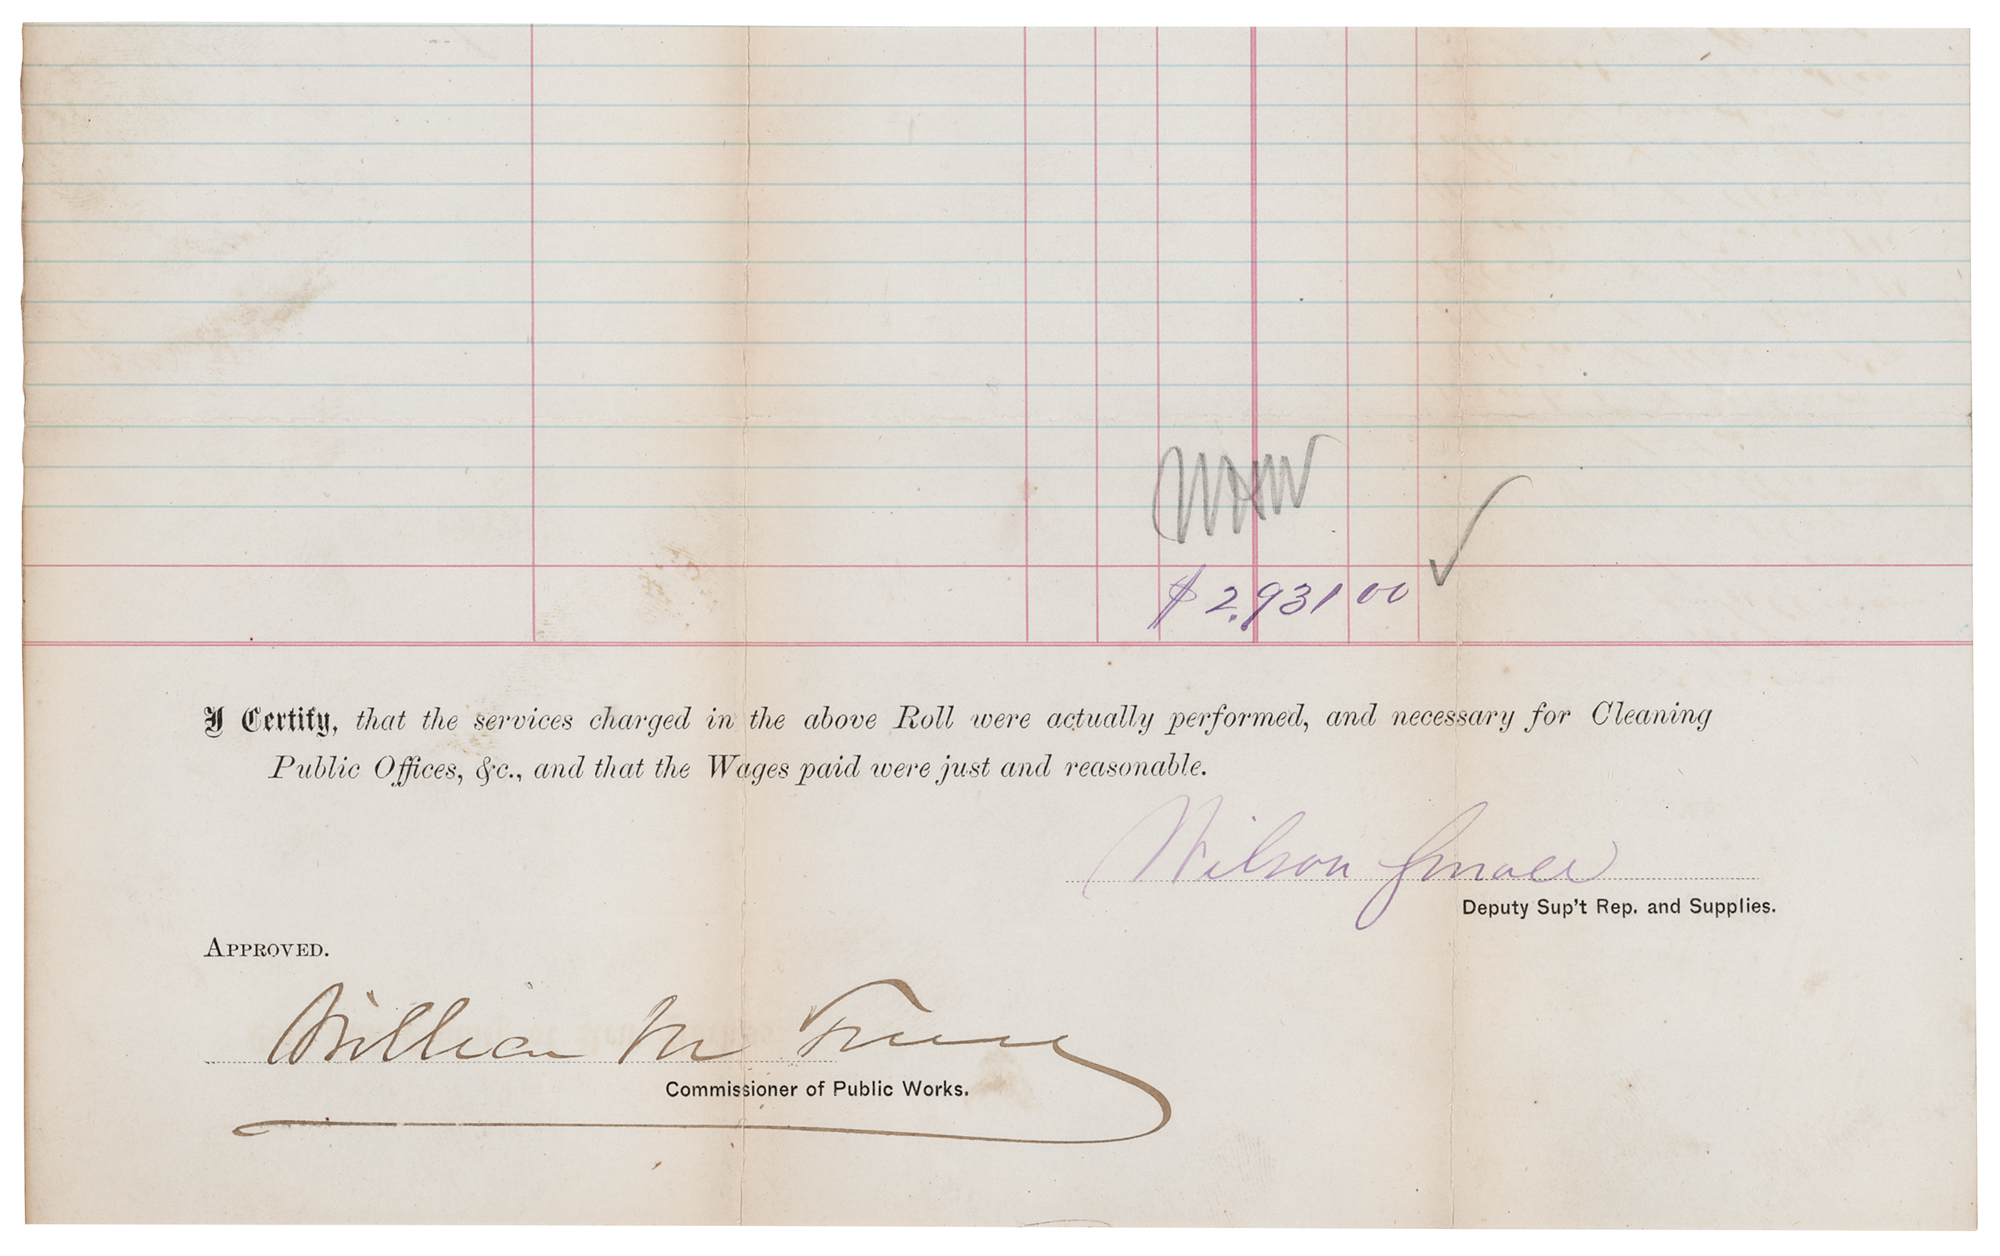 $ 2,931 00
I Certify, that the services charged in the above Roll were actually performed, and necessary for Cleaning
Public Offices, &c., and that the Wages paid were just and reasonable.
Wilson Small
Deputy Sup't Rep. and Supplies.
APPROVED.
William M Tweed
Commissioner of Public Works.